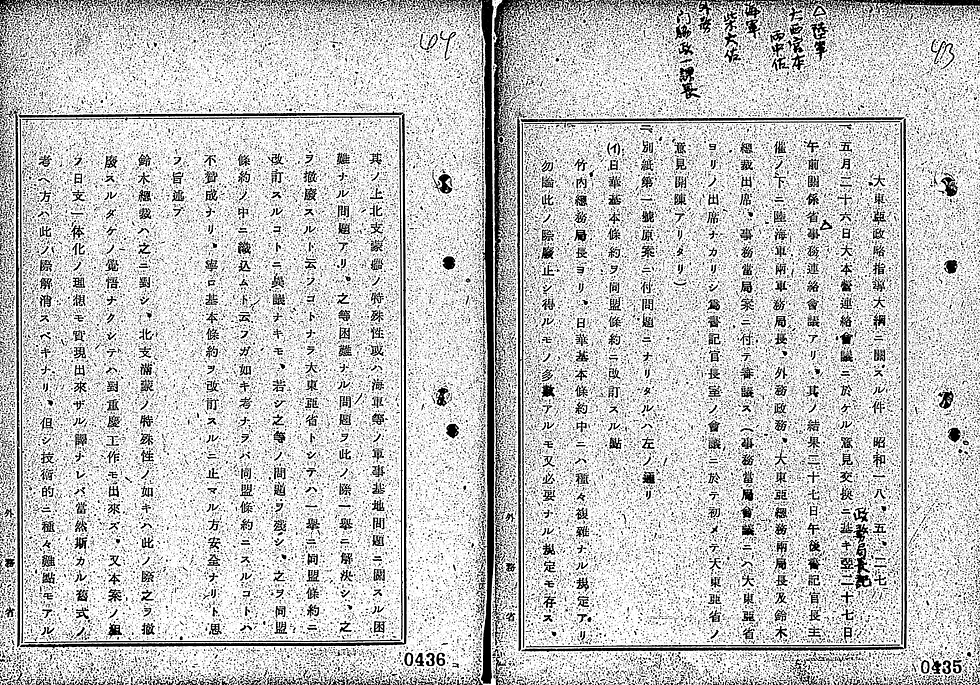 43
△陸軍
海軍
柴大佐
外務
門脇政一課長
大東亞政略指導大綱ニ關スル件 昭和一八、五、二七
政務局長記
一、五月二十六日大本營連絡會議ニ於ケル意見交換ニ基キ翌二十七日
午前關係省事務連絡會議アリ。其ノ結果二十七日午後書記官長主
催ノ下ニ陸海軍兩軍務局長、外務政務、大東亞總務兩局長及鈴木
總裁出席、事務當局案ニ付テ審議ス(事務當局會議ニハ大東亞省
ヨリノ出席ナカリシ爲書記官長室ノ會議ニ於テ初メテ大東亞省ノ
意見開陳アリタリ)
二、別紙第一號原案ニ付問題ニナリタルハ左ノ通リ
(イ)日華基本條約ヲ同盟條約ニ改訂スル點
竹內總務局長ヨリ、日華基本條約中ニハ種々複雜ナル規定アリ
勿論此ノ際廢止シ得ルモノ多數アルモ又必要ナル規定モ存ス、
外務省
0435
44
其ノ上北支蒙疆ノ特殊性或ハ海軍等ノ軍事基地問題ニ關スル困
難ナル問題アリ、之等困難ナル問題ヲ此ノ際一擧ニ解決シ、之
ヲ撤廢スルト云フコトナラ大東亞省トシテハ一擧ニ同盟條約ニ
改訂スルコトニ異議ナキモ、若シ之等ノ問題ヲ殘シ、之ヲ同盟
條約ノ中ニ織込ムト云フガ如キ考ナラバ同盟條約ニスルコトハ
不贊成ナリ、寧ロ基本條約ヲ改訂スルニ止マル方安全ナリト思
フ旨述ブ
鈴木總裁ハ之ニ對シ、北支滿蒙ノ特殊性ノ如キハ此ノ際之ヲ撤
廢スルダケノ覺悟ナクシテハ對重慶工作モ出來ズ、又本案ノ組
フ日支一體化ノ理想モ實現出來ザル譯ナレバ當然斯カル舊式ノ
考ヘ方ハ此ノ際解消スベキナリ、但シ技術的ニ種々難點モアル
外務省
0436